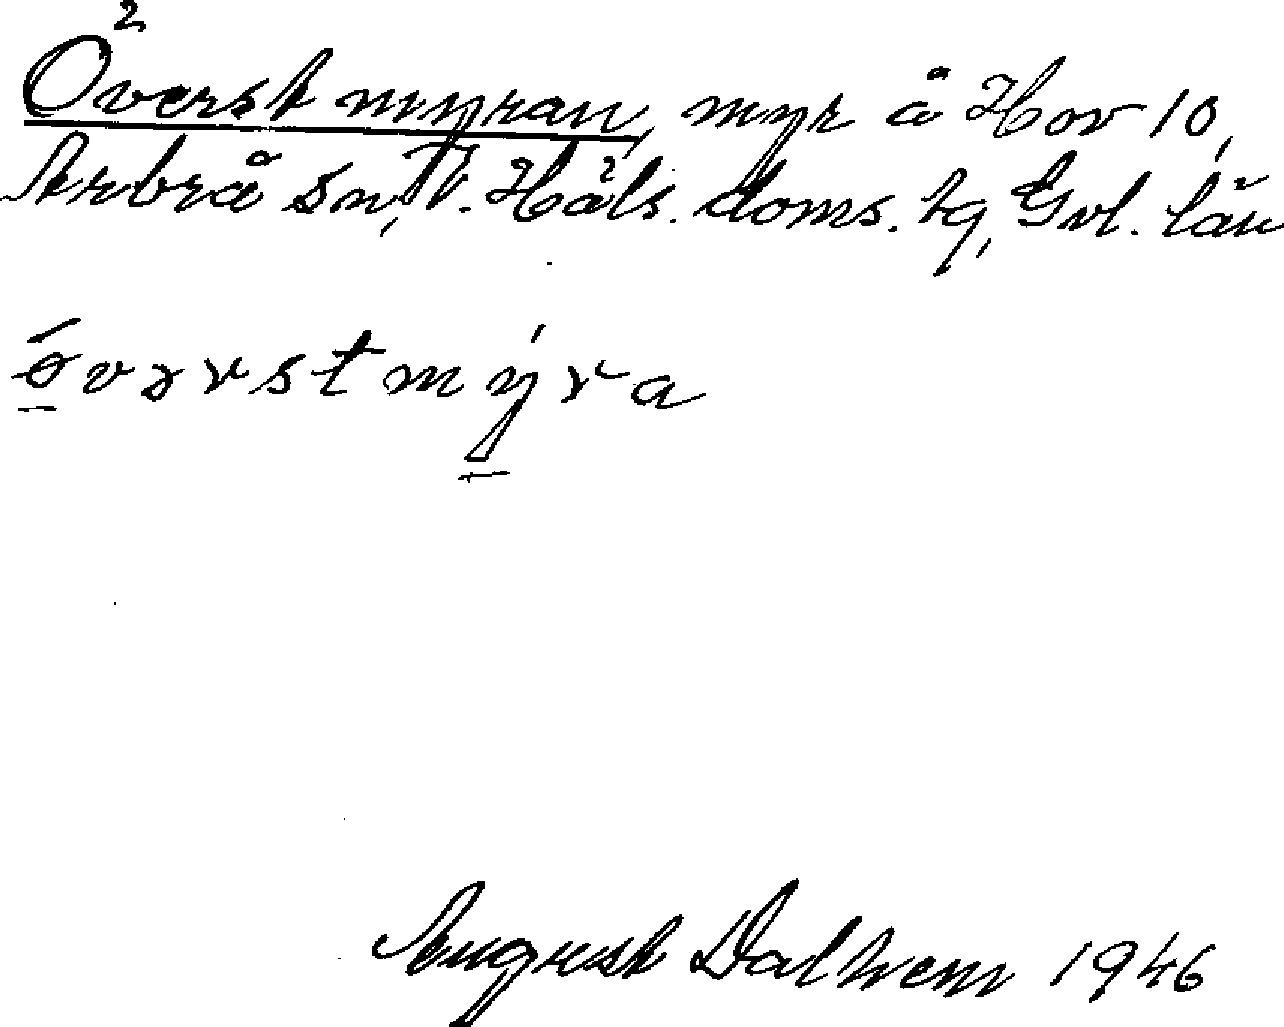 Överst myran, myr å Hov 10,
Arbrå sn, V. Häls. doms. tg, Gvl. län
ǿvərstmýra
August Dalhem 1946